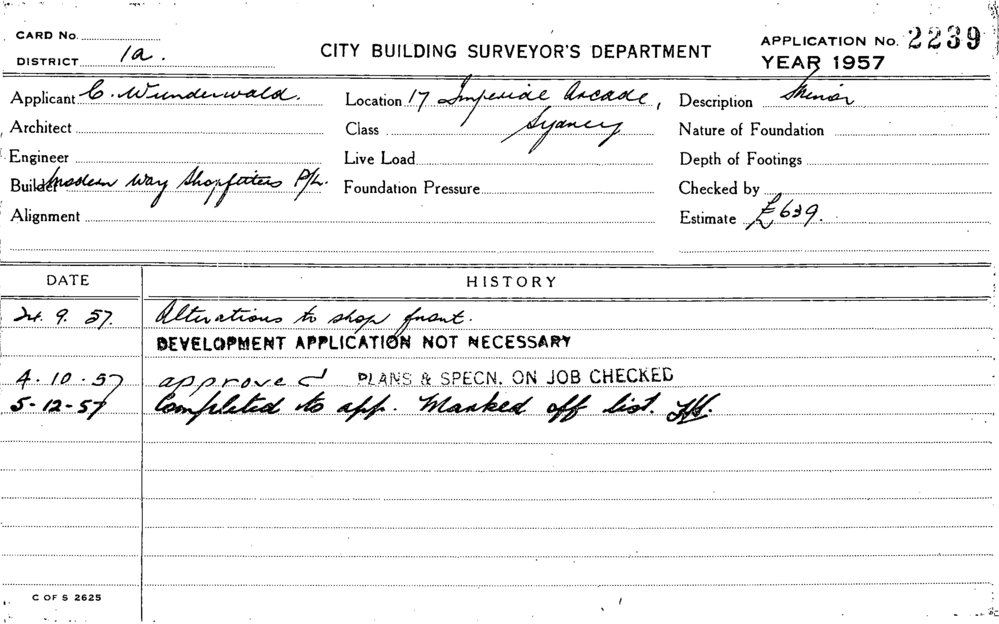 CARD No.
DISTRICT 1a.
CITY BUILDING SURVEYOR'S DEPARTMENT
APPLICATION No. 2239
YEAR 1957
Applicant C. Wunderwald.
Location 17 Imperial Arcade, Sydney
Description Minor
Architect
Class
Nature of Foundation
Engineer
Live Load
Depth of Footings
Builder Modern Way Shopfitters P/L.
Foundation Pressure
Checked by
Alignment
Estimate £639.
DATE HISTORY
24. 9. 57. Alterations to shop front.
DEVELOPMENT APPLICATION NOT NECESSARY
4. 10. 57 approved PLANS & SPECN. ON JOB CHECKED
5-12-57 Completed to app. Marked off list.
C OF S 2625